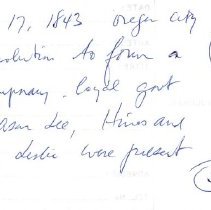 17, 1843 Oregon City
solution to form a
mporary loyal govt
ason Lee, Hines and
Leslie were present